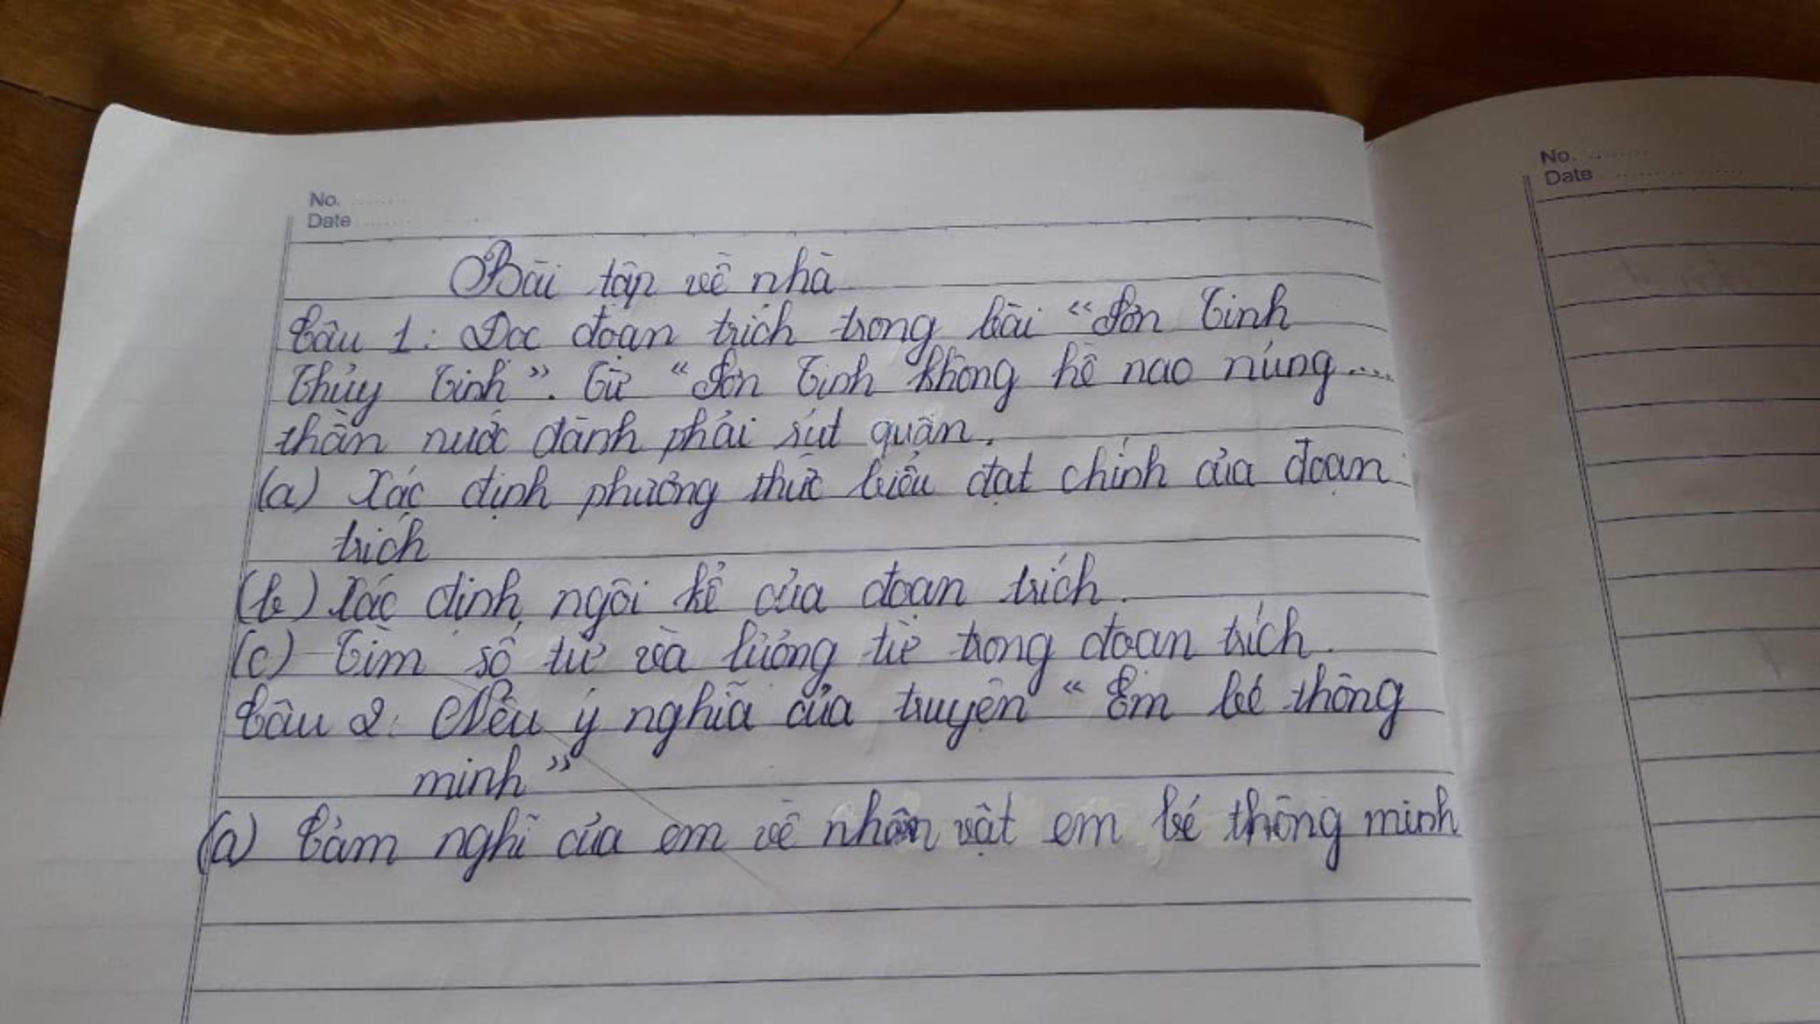 No.
Date
Bài tập về nhà
Câu 1: Đọc đoạn trích trong bài “Sơn Tinh
Thủy Tinh”. Từ “Sơn Tinh không hề nao núng....
thần nước đành phải rút quân.
(a) Xác định phương thức biểu đạt chính của đoạn
trích
(b) Xác định ngôi kể của đoạn trích.
(c) Tìm số từ và lượng từ trong đoạn trích.
Câu 2: Nêu ý nghĩa của truyện “Em bé thông
minh”
(a) Cảm nghĩ của em về nhân vật em bé thông minh
No.
Date